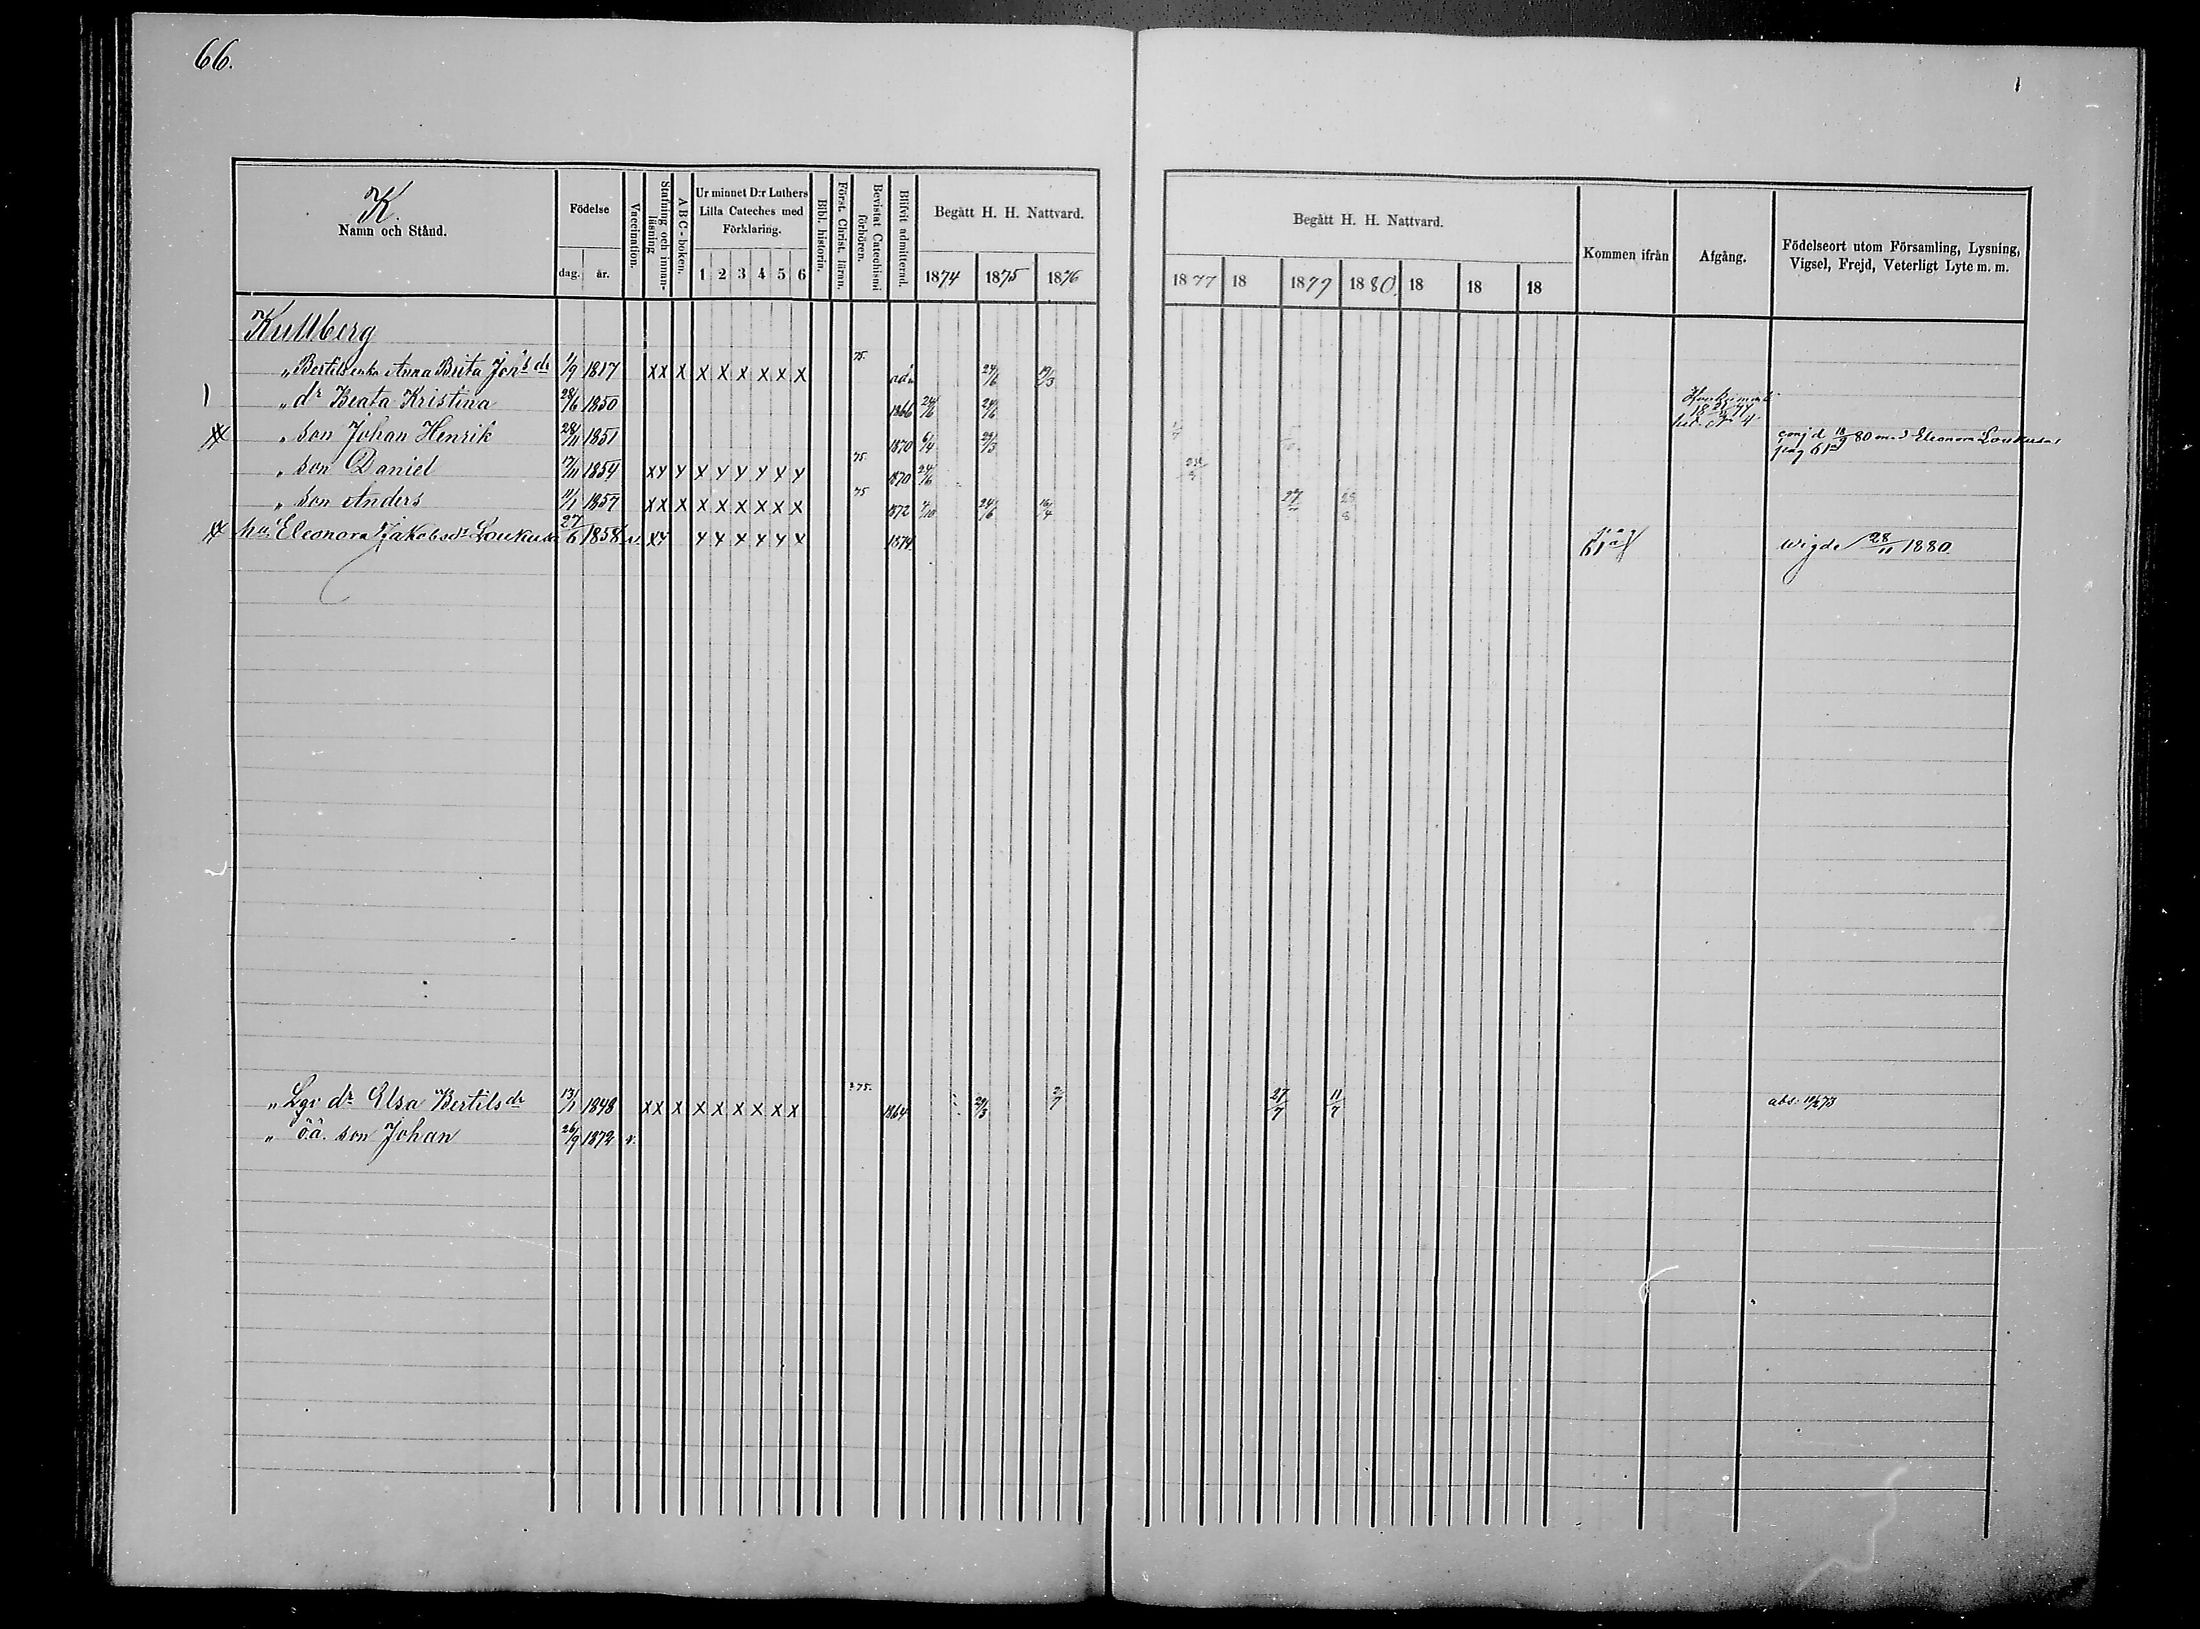 66.
K.
Namn och Stånd.
Födelse
dag. år.
Vaccination.
Stafning och innanläsning
A B C - boken.
Ur minnet D:r Luthers Lilla Cateches med Förklaring.
1 2 3 4 5 6
Bibl. historin.
Först. Christ. läran.
Bevistat Catechismi förhören.
Blifvit admitterad.
Begått H. H. Nattvard.
1874 1875 1876
Begått H. H. Nattvard.
1877 18 1879 1880. 18 18 18
Kommen ifrån
Afgång.
Födelseort utom Församling, Lysning, Vigsel, Frejd, Veterligt Lyte m. m.
Kullberg
„ Bertils enka Anna Brita Joh:s dr 1/9 1817 xx x x x x x x x 75. adm 24/6 19/3
„ dr Beata Kristina 28/6 1850 1866 24/6 24/6
„ son Johan Henrik 28/11 1851 1870 6/4 29/3 conj d 18/9 80 med Eleonora Loukusa pag 61
„ son Daniel 17/11 1854 xx x x x x x x x 75. 1870 24/6
„ son Anders 11/1 1857 xx x x x x x x x 75 1872 24/6 16/4
hu Eleonora Jakobsdr Loukusa 27/6 1858 v. xx x x x x x x 1874 pag 61 wigde 28/11 1880
„ Lgv dr Elsa Bertils dr 13/1 1848 xx x x x x x x x 75. 1864 29/3 2/7 27/7 11/7 abs. 19/2 73
„ o.ä. son Johan 26/9 1872 v.